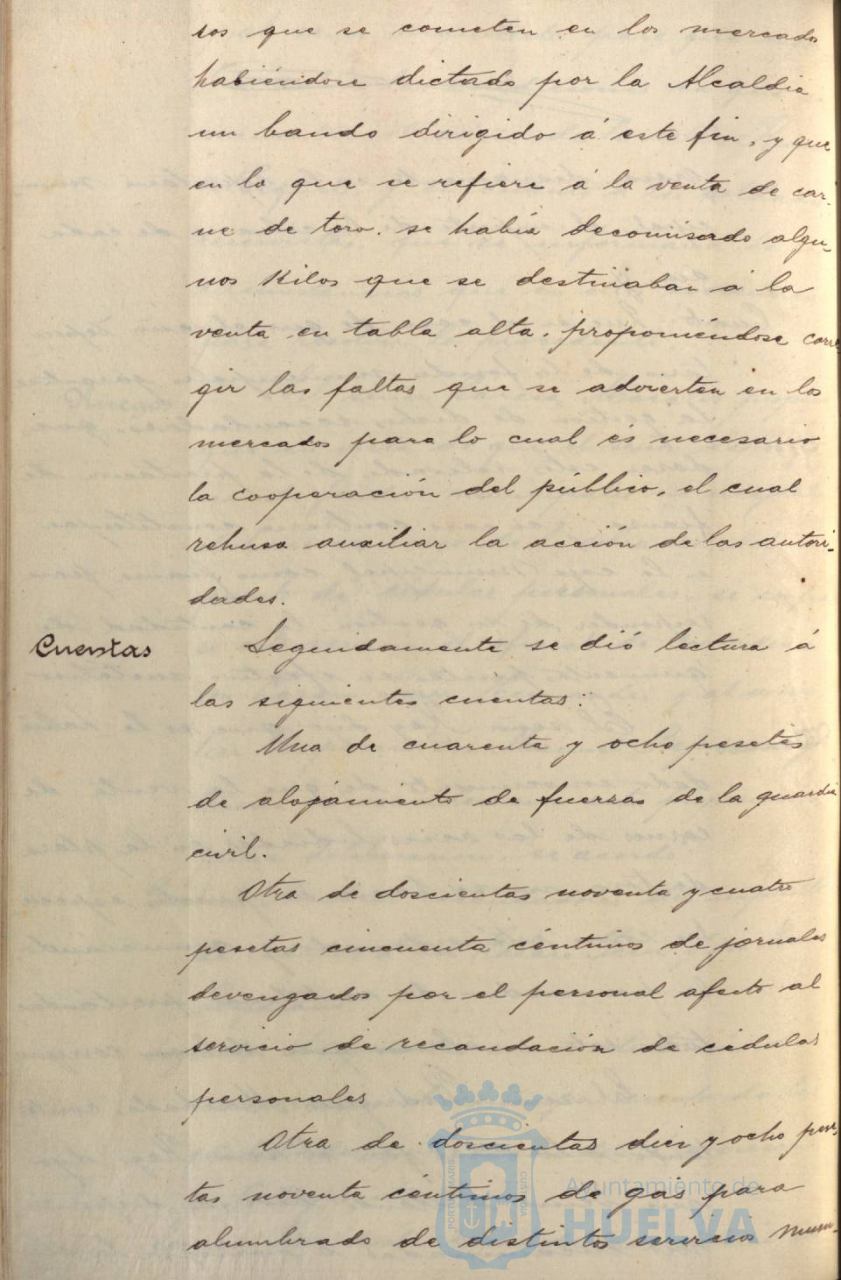 sos que se cometen en los mercados
habiéndose dictado por la Alcaldia
un bando dirigido á este fin, y que
en lo que se refiere á la venta de car-
ne de toro. se había decomisado algu-
nos Kilos que se destinaban á la
venta en tabla alta. proponiéndose corre-
gir las faltas que se advierten en los
mercados para lo cual és necesario
la cooperación del público, el cual
rehusa auxiliar la acción de las autori-
dades.
Cuentas
Seguidamente se dió lectura á
las siguientes cuentas:
Una de cuarenta y ocho pesetas
de alojamiento de fuerzas de la guardia
civil.
Otra de doscientas noventa y cuatro
pesetas cincuenta céntimos de jornales
devengados por el personal afecto al
servicio de recaudación de cédulas
personales
Otra de doscientas diez y ocho pese-
tas noventa céntimos de gas para
alumbrado de distintos servicios muni-
PORTUS MARIS
CUSTODIA
Ayuntamiento de
HUELVA